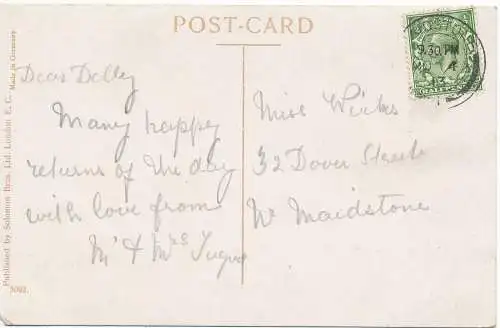 POST-CARD
Published by Solomon Bros. Ltd. London E. C. Made in Germany
Dear Dolly
Many happy
returns of the day
with love from
Mr & Mrs
Miss Wicks
32 Dover Street
Nr Maidstone
7.30 PM
4
13
HALF